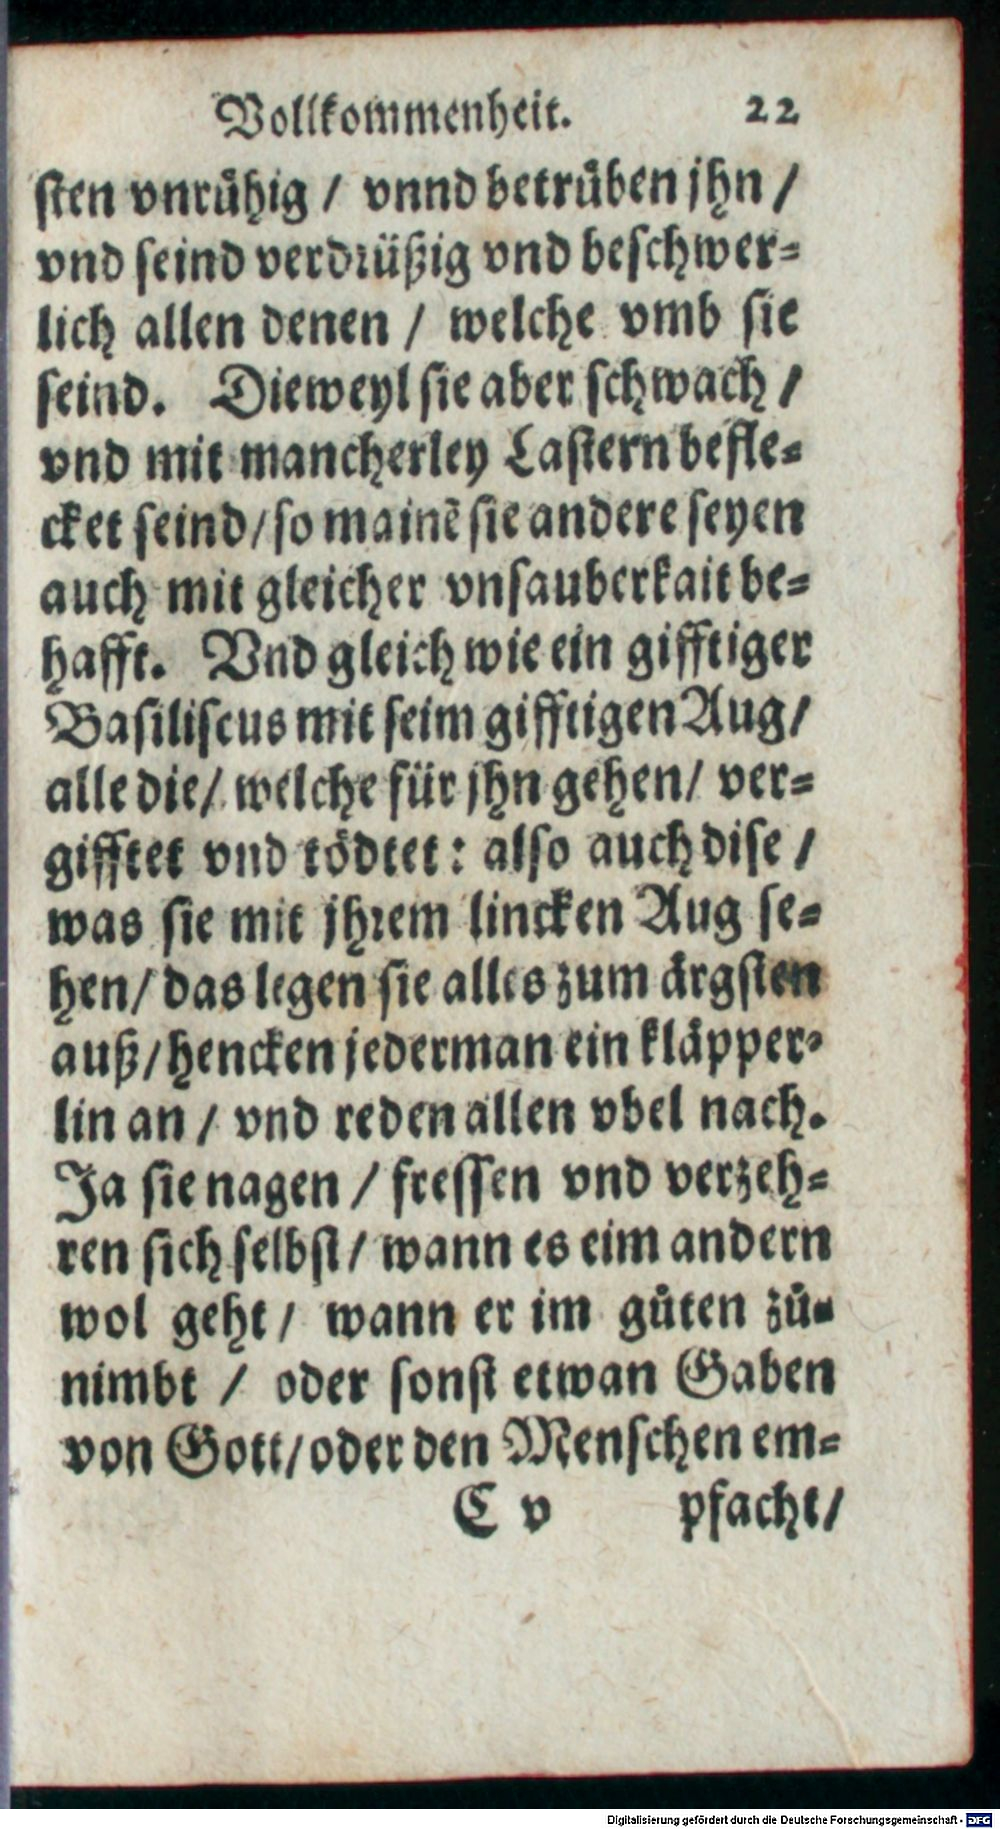 Vollkommenheit. 22
sten vnrůhig / vnnd betrüben jhn /
vnd seind verdrüßig vnd beschwer=
lich allen denen / welche vmb sie
seind. Dieweyl sie aber schwach /
vnd mit mancherley Lastern befle=
cket seind / so mainẽ sie andere seyen
auch mit gleicher vnsauberkait be=
hafft. Vnd gleich wie ein gifftiger
Basiliscus mit seim gifftigen Aug /
alle die / welche für jhn gehen / ver=
gifftet vnd tödtet: also auch dise /
was sie mit jhrem lincken Aug se=
hen / das legen sie alles zum ärgsten
auß / hencken jederman ein kläpper=
lin an / vnd reden allen vbel nach.
Ja sie nagen / fressen vnd verzeh=
ren sich selbst / wann es eim andern
wol geht / wann er im gůten zů=
nimbt / oder sonst etwan Gaben
von Gott / oder den Menschen em=
C v pfacht /
Digitalisierung gefördert durch die Deutsche Forschungsgemeinschaft - DFG